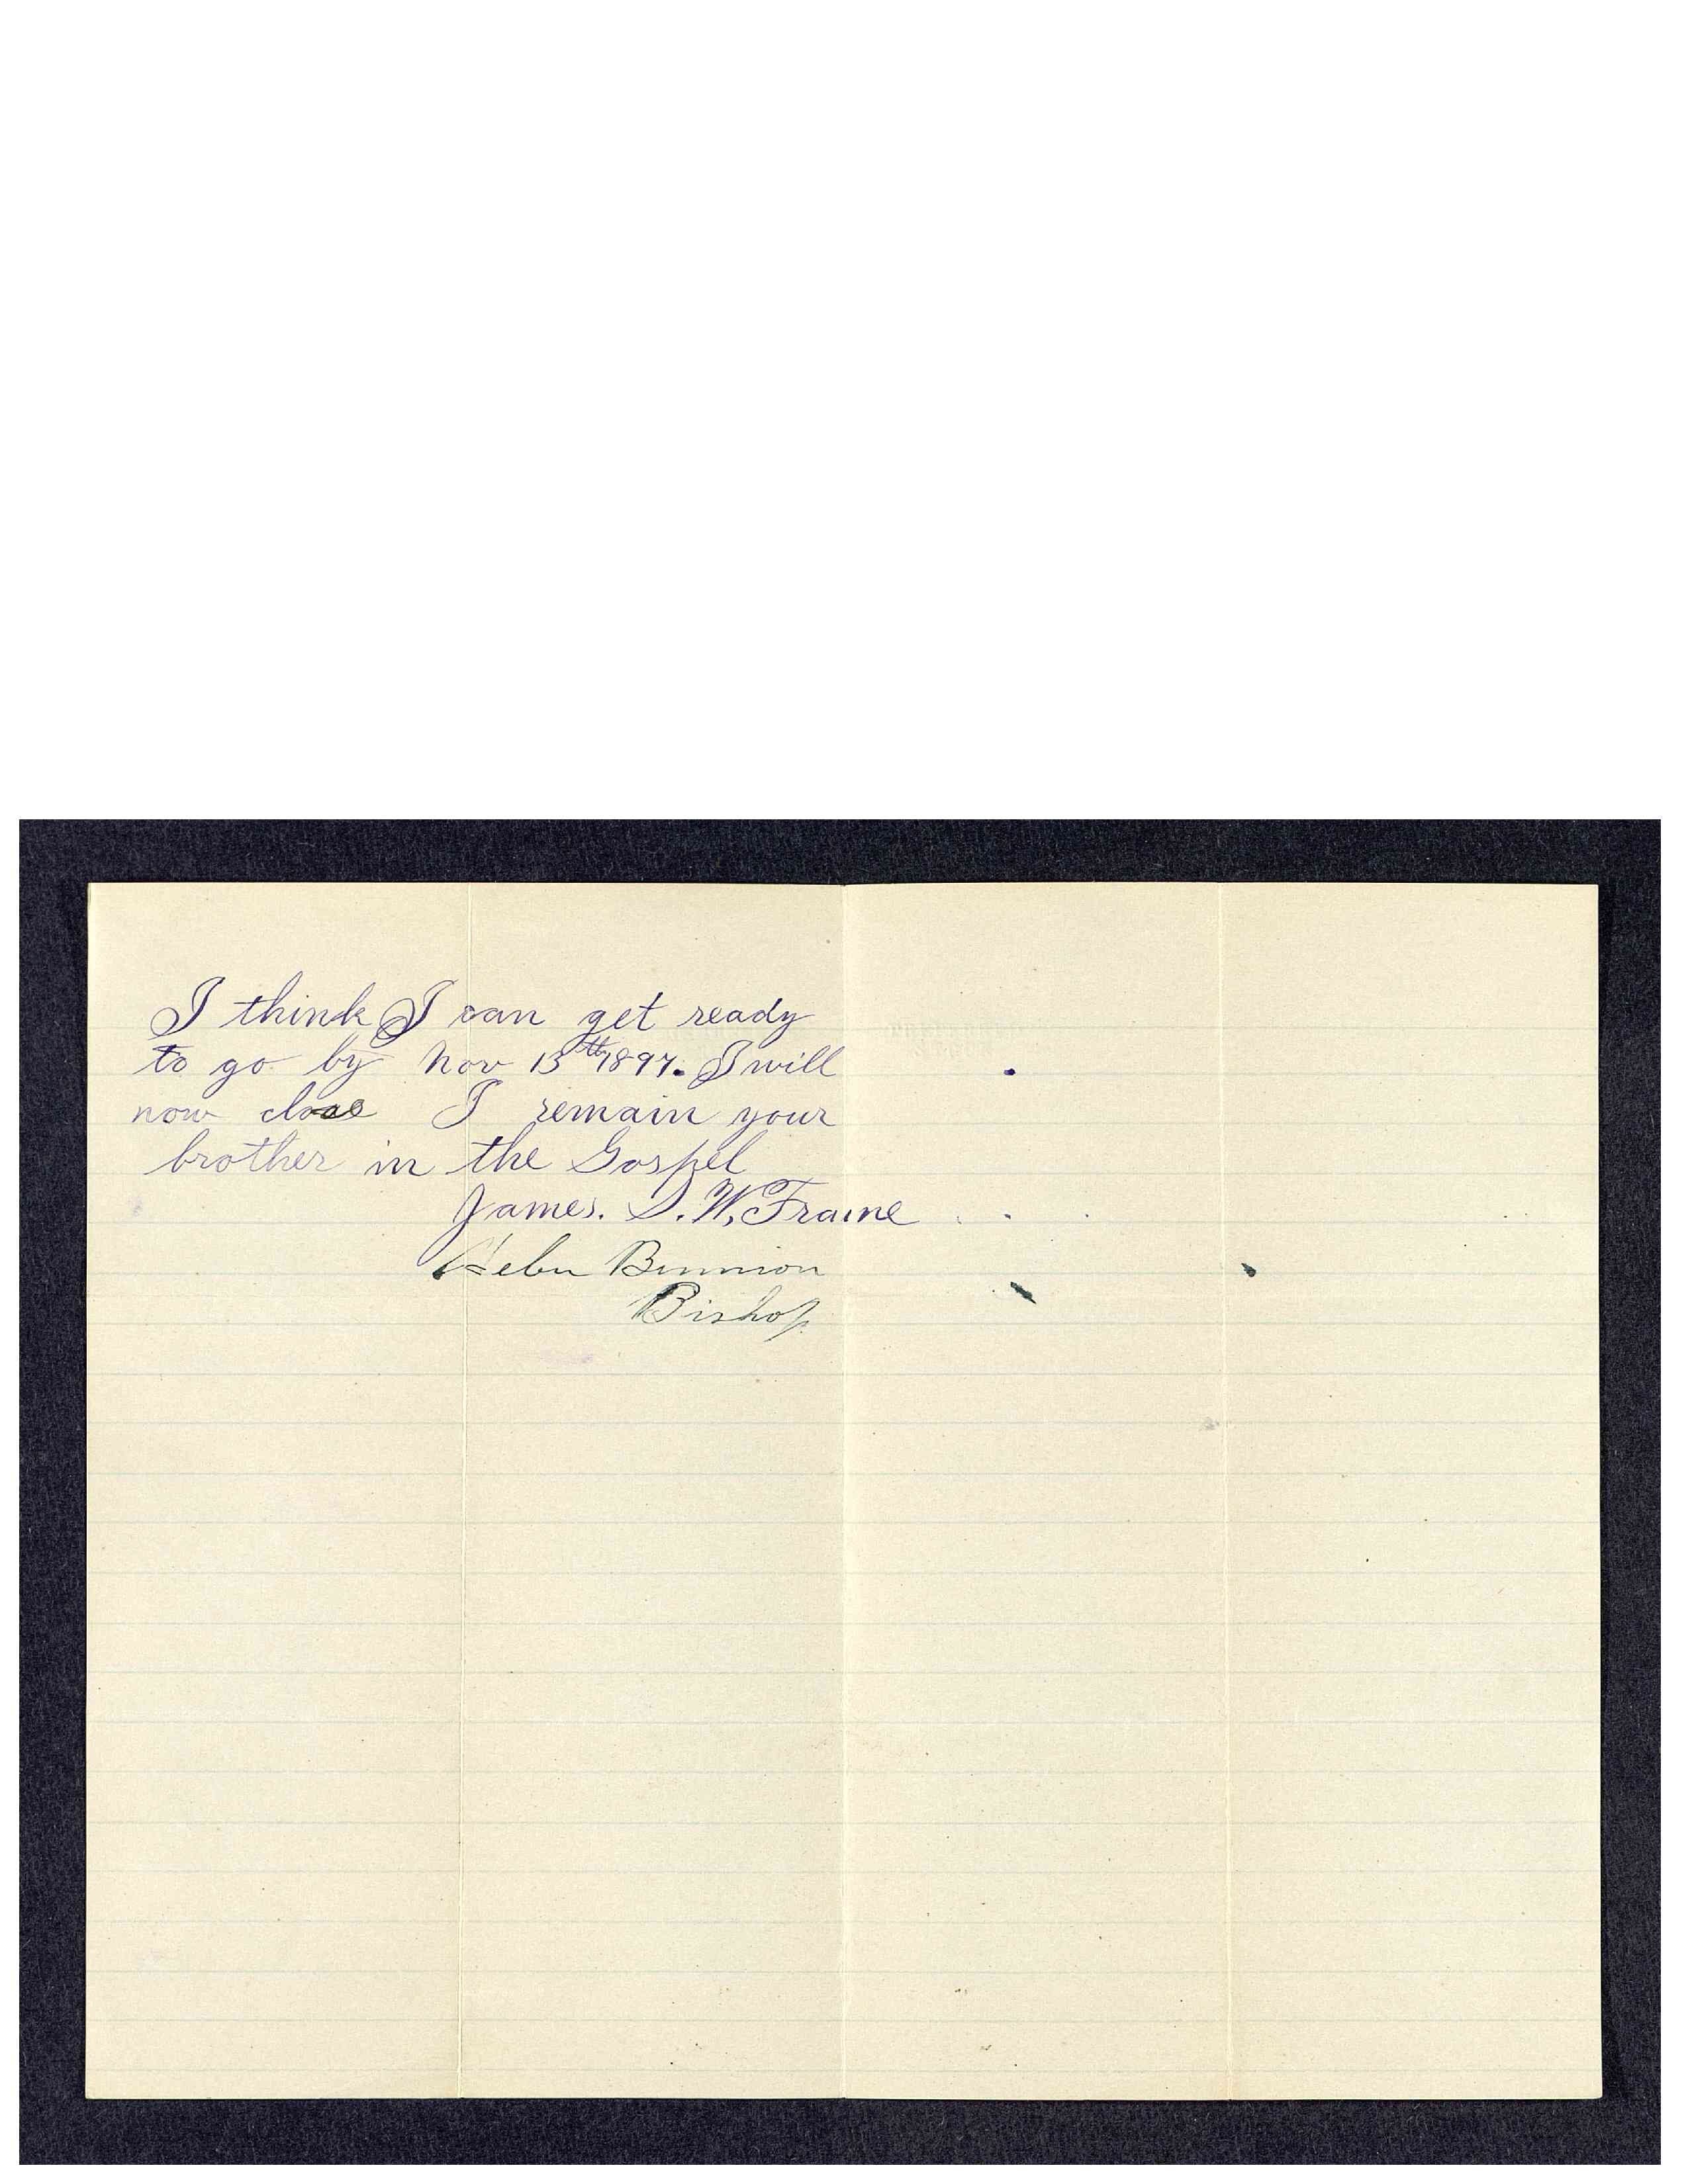 I think I can get ready
to go by Nov 13th 1897. I will
now close I remain your
brother in the Gospel
James. S. W. Fraine
Heber Bennion
Bishop